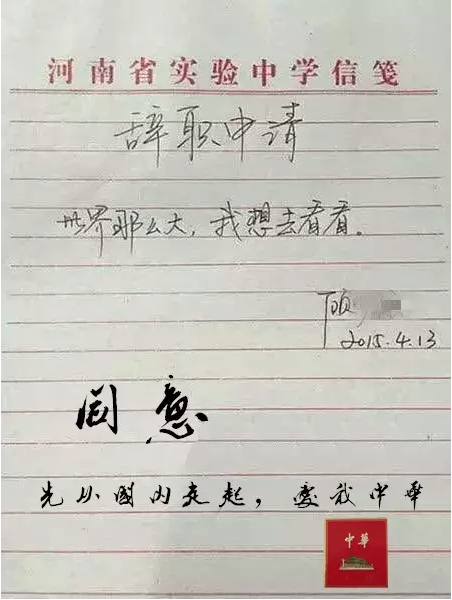 河南省实验中学信笺
辞职申请
世界那么大，我想去看看。
顾
2015.4.13
同意
先从國内走起，愛我中華
中華